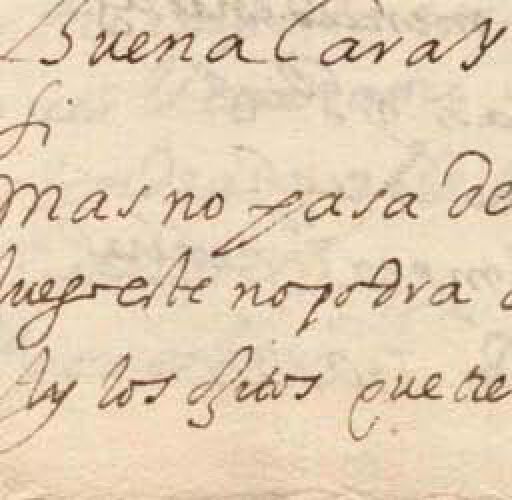 Buena Cara y
si
mas no pasa de
luego este no podra
Ay los que tre